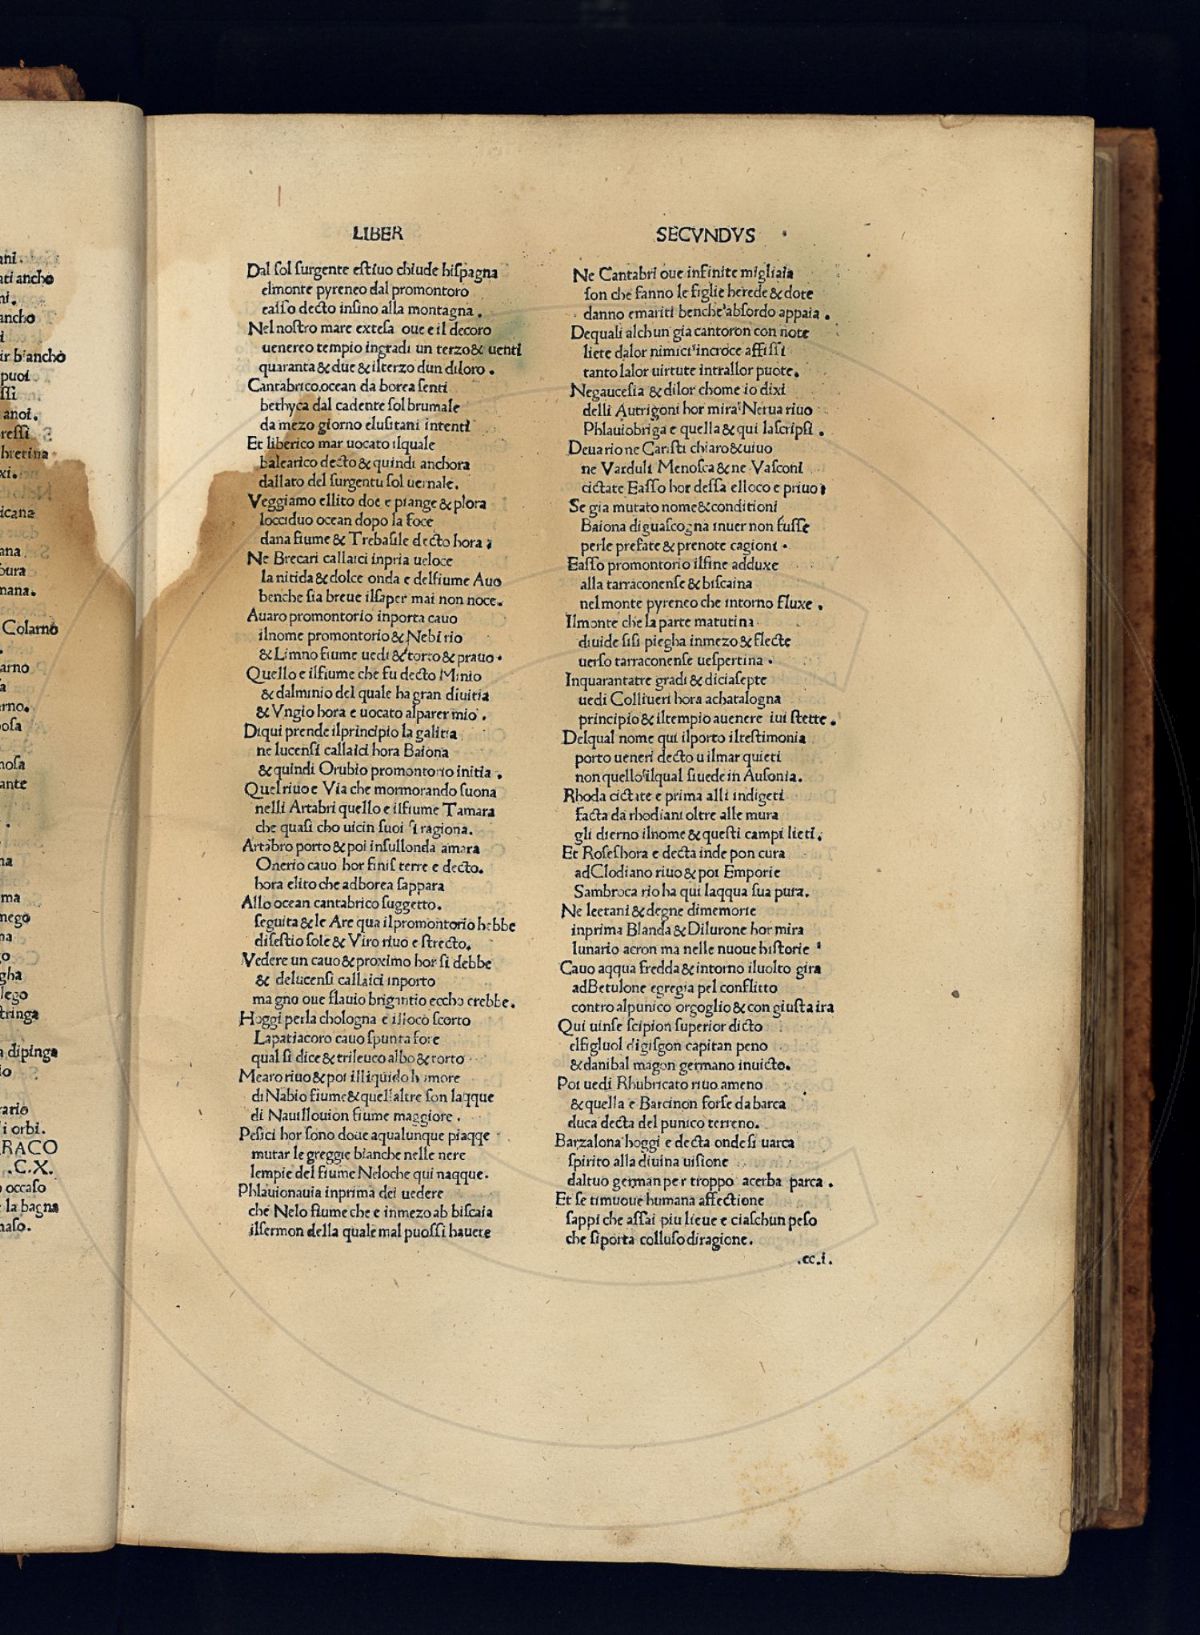 ani.
ati ancho
ni.
ancho
i
ir biancho
puoi
ssi
anoi.
ressi
bretina
xi.
icana
ana
bura
mana.
Colarno
.
arno
a
rno.
bosa
nosa
ante
.
na
ma
nego
na
go
gha
lego
tringa
a dipinga
lo
rario
li orbi.
RACO
.C.X.
o occaso
e la bagna
naso.
LIBER
Dal sol surgente estiuo chiude hispagna
elmonte pyreneo dal promontoro
easso decto insino alla montagna .
Nel nostro mare extesa oue e il decoro
uenereo tempio ingradi un terzo & uenti
quaranta & due & ilterzo dun di loro .
Cantabrico ocean da borea senti
bethyca dal cadente sol brumale
da mezo giorno elusitani intenti
Et liberico mar uocato ilquale
balearico decto & quindi anchora
dallato del surgentu sol uernale.
Veggiamo ellito doe e piange & plora
locciduo ocean dopo la foce
dana fiume & Trebasile decto hora ;
Ne Brecari callaici inpria ueloce
la nitida & dolce onda e delfiume Auo
benche sia breue ilsaper mai non noce.
Auaro promontorio inporta cauo
ilnome promontorio & Nebi rio
& Limno fiume uedi & torto & prauo .
Quello e ilfiume che fu decto Minio
& dalminio del quale ha gran diuitia
& Vngio hora e uocato alparer mio .
Di qui prende ilprincipio la galitia
ne lucensi callaici hora Baiona
& quindi Orubio promontorio initia .
Quel riuo e Via che mormorando suona
nelli Artabri quello e ilfiume Tamara
che quasi cho uicin suoi si ragiona.
Artabro porto & poi insullonda amara
Onerio cauo hor finis terre e decto.
hora elito che adborea sappara
Allo ocean cantabrico suggetto.
seguita & le Are qua ilpromontorio hebbe
di sestio sole & Viro riuo e strecto.
Vedere un cauo & proximo hor si debbe
& delucensi callaici inporto
magno oue flauio brigantio eccho crebbe.
Hoggi perla chologna e illoco scorto
Lapatiacoro cauo spunta fore
qual si dice & trileuco albo & torto
Mearo riuo & poi illiquido humore
di Nabio fiume & quellaltre son laqque
di Nauillouion fiume maggiore .
Pesici hor sono doue aqualunque piaqqe
mutar le greggie bianche nelle nere
lempie del fiume Neloche qui naqque.
Phlauionauia inprima dei uedere
che Nelo fiume che e inmezo ab biscaia
ilsermon della quale mal puossi hauere
SECVNDVS
Ne Cantabri oue infinite migliaia
son che fanno le figlie herede & dote
danno emariti benche absordo appaia .
Dequali alchun gia cantoron con note
liete dalor nimici incroce affissi
tanto lalor uirtute intrallor puote.
Negaucesia & dilor chome io dixi
delli Autrigoni hor mira Nerua riuo
Phlauiobriga e quella & qui lascripsi .
Deua rio ne Caristi chiaro & uiuo
ne Varduli Menosca & ne Vasconi
cictate Easso hor dessa elloco e priuo ;
Se gia mutato nome & conditioni
Baiona di guascogna inuer non fusse
perle prefate & prenote cagioni .
Easso promontorio ilfine adduxe
alla tarraconense & biscaina
nelmonte pyreneo che intorno fluxe .
Ilmonte che la parte matutina
diuide sisi piegha inmezo & flecte
uerso tarraconense uespertina .
Inquarantatre gradi & diciasepte
uedi Colliueri hora achatalogna
principio & iltempio auenere iui stette .
Delqual nome qui ilporto iltestimonia
porto ueneri decto u ilmar quieti
non quello ilqual siuede in Ausonia.
Rhoda cictate e prima alli indigeti
facta da rhodiani oltre alle mura
gli dierno ilnome & questi campi lieti.
Et Roses hora e decta inde pon cura
adClodiano riuo & poi Emporie
Sambroca rio ha qui laqqua sua pura.
Ne leetani & degne dimemorie
inprima Blanda & Dilurone hor mira
lunario acron ma nelle nuoue historie
Cauo aqqua fredda & intorno iluolto gira
adBetulone egregia pel conflitto
contro alpunico orgoglio & con giusta ira
Qui uinse scipion superior dicto
elfigluol digisgon capitan peno
& danibal magon germano inuicto.
Poi uedi Rhubricato riuo ameno
& quella e Barcinon forse da barca
duca decta del punico terreno.
Barzalona hoggi e decta onde si uarca
spirito alla diuina uisione
daltuo german per troppo acerba parca .
Et se timuoue humana affectione
sappi che assai piu lieue e ciaschun peso
che siporta colluso diragione.
.cc.i.